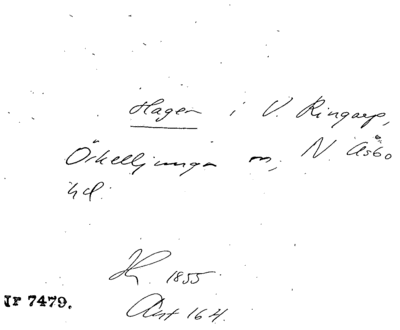 Hagen i V. Ringarp,
Örkelljunga sn, N. Åsbo
hd.
Hy. 1855.
Akt 164.
Jr 7479.